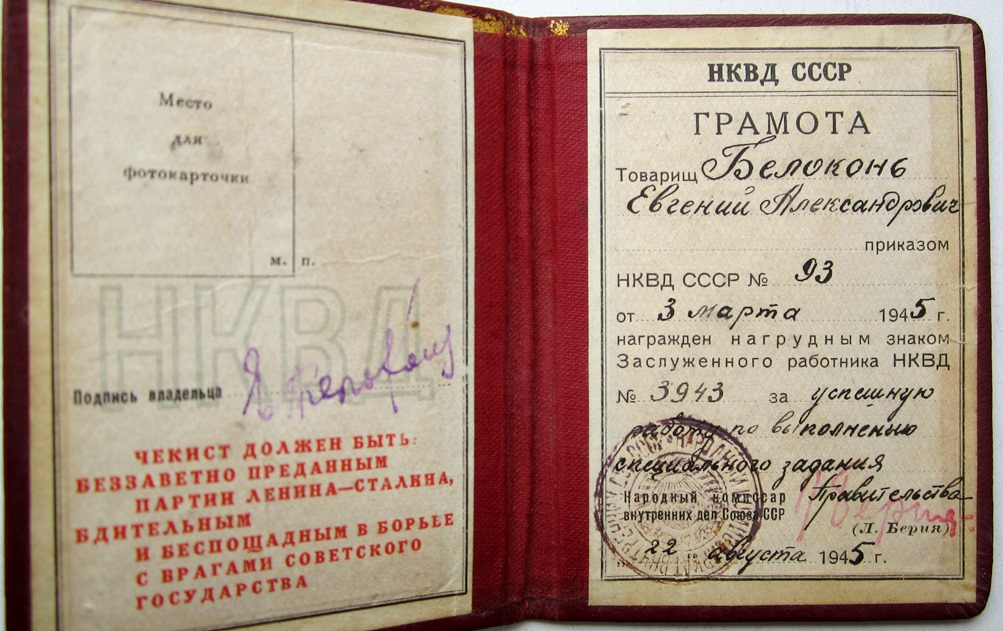 Место
для
фотокарточки
м. п.
НКВД
Подпись владельца
ЧЕКИСТ ДОЛЖЕН БЫТЬ:
БЕЗЗАВЕТНО ПРЕДАННЫМ
ПАРТИИ ЛЕНИНА—СТАЛИНА,
БДИТЕЛЬНЫМ
И БЕСПОЩАДНЫМ В БОРЬБЕ
С ВРАГАМИ СОВЕТСКОГО
ГОСУДАРСТВА
НКВД СССР
ГРАМОТА
Товарищ Белоконь
Евгений Александрович
приказом
НКВД СССР № 93
от 3 марта 1945 г.
награжден нагрудным знаком
Заслуженного работника НКВД
№ 3943 за успешную
работу по выполнению
специального задания
Правительства
Народный комиссар
внутренних дел Союза ССР
(Л. Берия)
22 августа 1945 г.